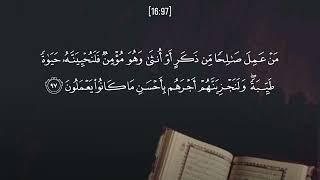 [16:97]
مَنْ عَمِلَ صَٰلِحًا مِّن ذَكَرٍ أَوْ أُنثَىٰ وَهُوَ مُؤْمِنٌ فَلَنُحْيِيَنَّهُۥ حَيَوٰةً
طَيِّبَةً ۖ وَلَنَجْزِيَنَّهُمْ أَجْرَهُم بِأَحْسَنِ مَا كَانُوا۟ يَعْمَلُونَ ﴿٩٧﴾